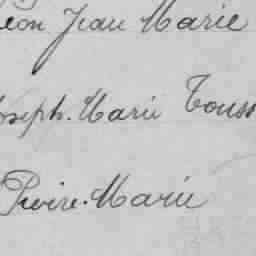 éon Jean Marie
Joseph. Marie Touss
Pierre. Marie